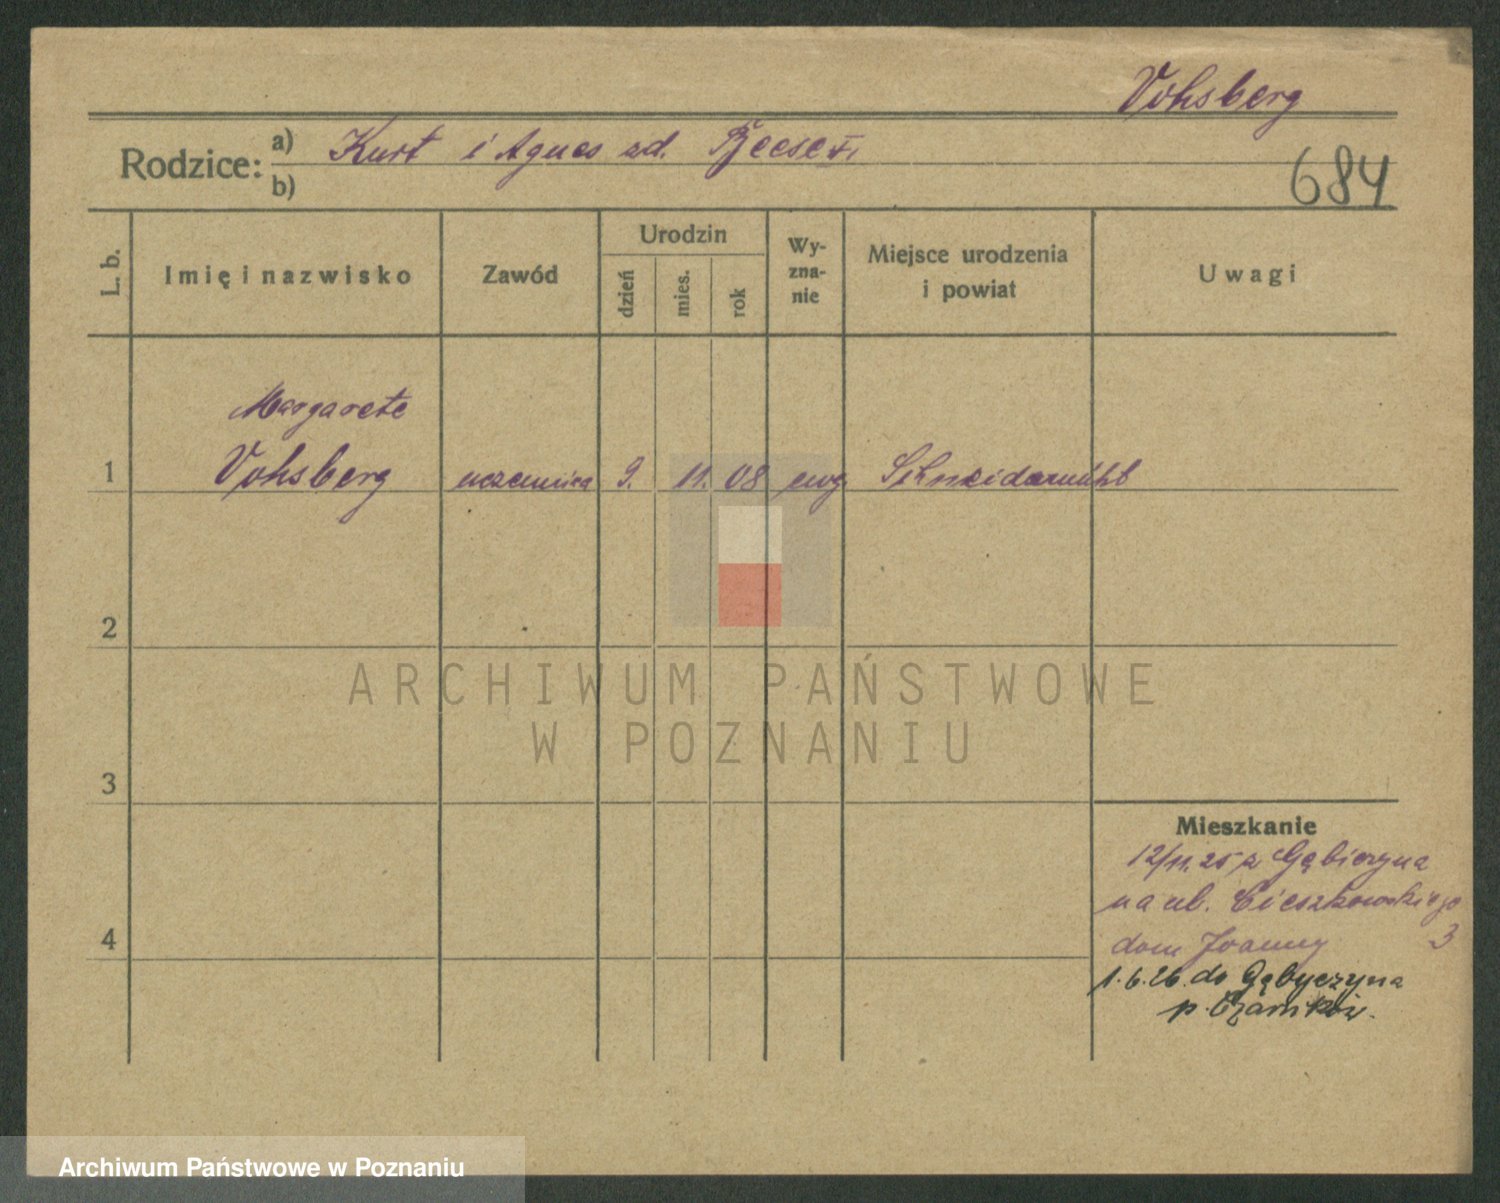 Vohsberg
Rodzice: a) Kurt i Agnes zd.
b)
684
L. b.
Imię i nazwisko
Zawód
Urodzin
dzień
mies.
rok
Wy-
zna-
nie
Miejsce urodzenia
i powiat
Uwagi
Margarete
1 Vohsberg uczennica 9. 11. 08 ewg Schneidemühl
2
3
4
Mieszkanie
12/11.25 z Gębiczyna
na ul. Cieszkowskiego
3
dom Joanny
1.6.26. do Gębyczyna
p. Czarnków.
ARCHIWUM PAŃSTWOWE
W POZNANIU
Archiwum Państwowe w Poznaniu